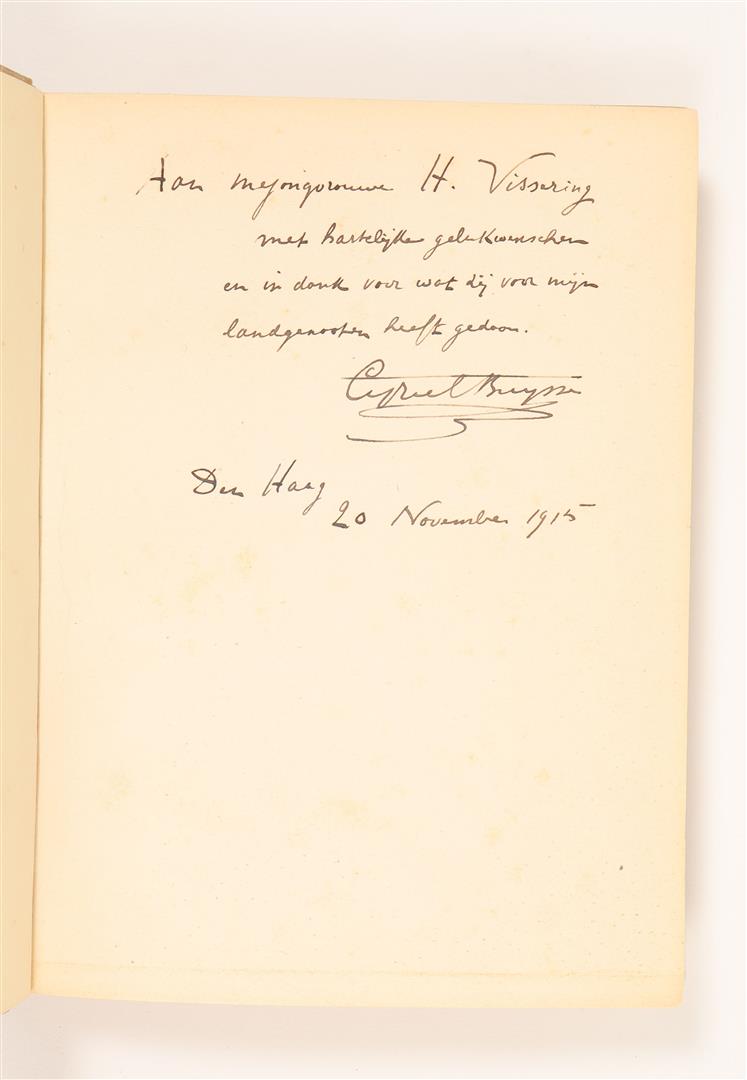 Aan mejongvrouwe H. Vissering
met hartelijke gelukwenschen
en in dank voor wat zij voor mijn
landgenooten heeft gedaan.
Cyriel Buysse
Den Haag
20 November 1915